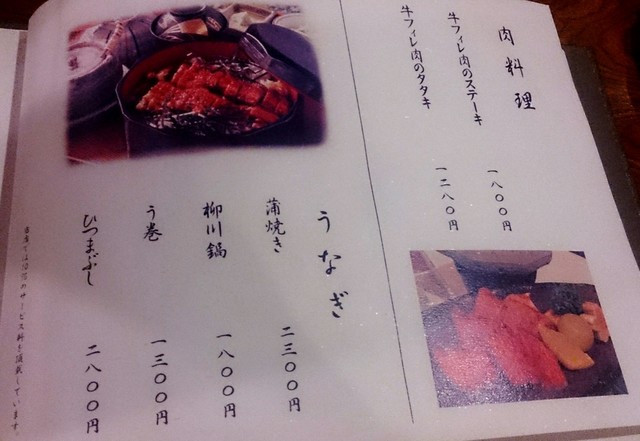 肉料理
牛フィレ肉のステーキ
一八〇〇円
牛フィレ肉のタタキ
一二八〇円
うなぎ
蒲焼き
二三〇〇円
柳川鍋
一八〇〇円
う巻
一三〇〇円
ひつまぶし
二八〇〇円
のサービス料を頂戴しています。